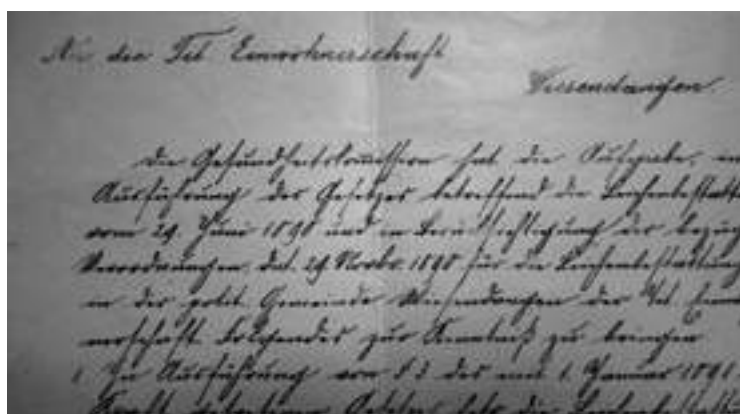 An die Tit. Einwohnerschaft
Wiesendangen.
Die Gesundheitskommission hat die Aufgabe, in
Ausführung des Gesetzes betreffend die Leichenbestattung
vom 29. Juni 1890 und in Berücksichtigung der bezügl
Verordnungen, dat. 29 Novbr. 1890 für die Leichenbestattung
in der polit. Gemeinde Wiesendangen der Tit. Einw
nerschaft Folgendes zur Kenntniß zu bringen
1. In Ausführung von § 3 des mit 1. Januar 1891.
Kraft Gesetzes die